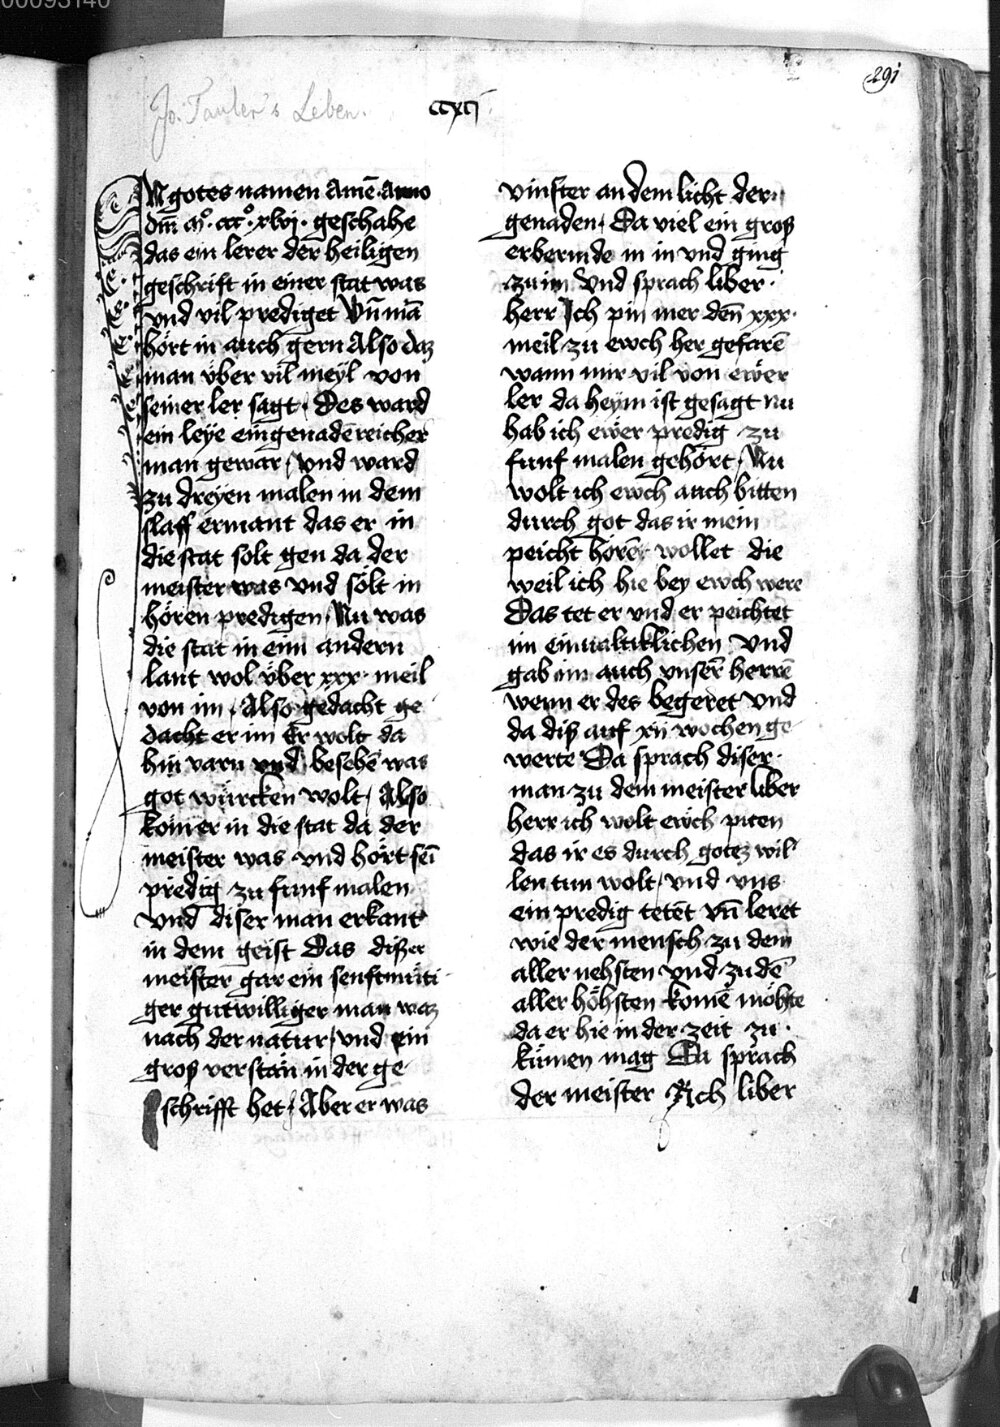 00093140
291
Jo. Tauler's Leben.
ccxcj
IN gotes namen Amē Anno
dm̄ mº·cccº·xlvj· geschahe
das ein lerer der heiligen
geschrift in einer stat was
vnd vil prediget Vn̄ mā
hört in auch gern Also daz
man v̈ber vil meyl von
seiner ler sagt· Des ward
ein leÿe ein genadē reicher
man gewar / vnd ward
zu dreÿen malen in dem
slaff ermant das er in
die stat solt gen da der
meister was vnd sölt in
hören predigen / Nu was
die stat in eim andern
lant wol v̈ber xxx· meil
von im / Also gedacht ge
dacht er im Er wolt da
hin varn vnd besehē was
got würcken wolt / Also
kom er in die stat da der
meister was vnd hört sei
predig zu funf malen
Vnd diser man erkant
in dem geist Das dißer
meister gar ein senftmüti
ger gutwilliger man waz
nach der natur / vnd ein
groß verstan in der ge
schrifft het / Aber er was
vinster an dem licht der
genaden / Da viel ein groß
erbermde in in vnd ging
zu im Vnd sprach liber
herr Ich pin mer den̄ xxx·
meil zu ewch her gefarē
wann mir vil von ewer
ler da heym ist gesagt nu
hab ich ewer predig zu
funf malen gehört / Nu
wolt ich ewch auch bitten
durch got das ir mein
peicht hören wollet die
weil ich hie bey ewch were
Das tet er vnd er peichtet
im einualtiklichen Vnd
gab im auch vnsern̄ herrē
wenn er des begeret Vnd
da diß auf xij wochen ge
werte Da sprach diser
man zu dem meister liber
herr ich wolt ewch piten
das ir es durch gotez wil
len tun wolt / vnd vns
ein predig tetet vn̄ leret
wie der mensch zu dem
aller nehsten vnd zu dē
aller höhsten komē möhte
da er hie in der zeit zu
kumen mag Da sprach
der meister Ach liber